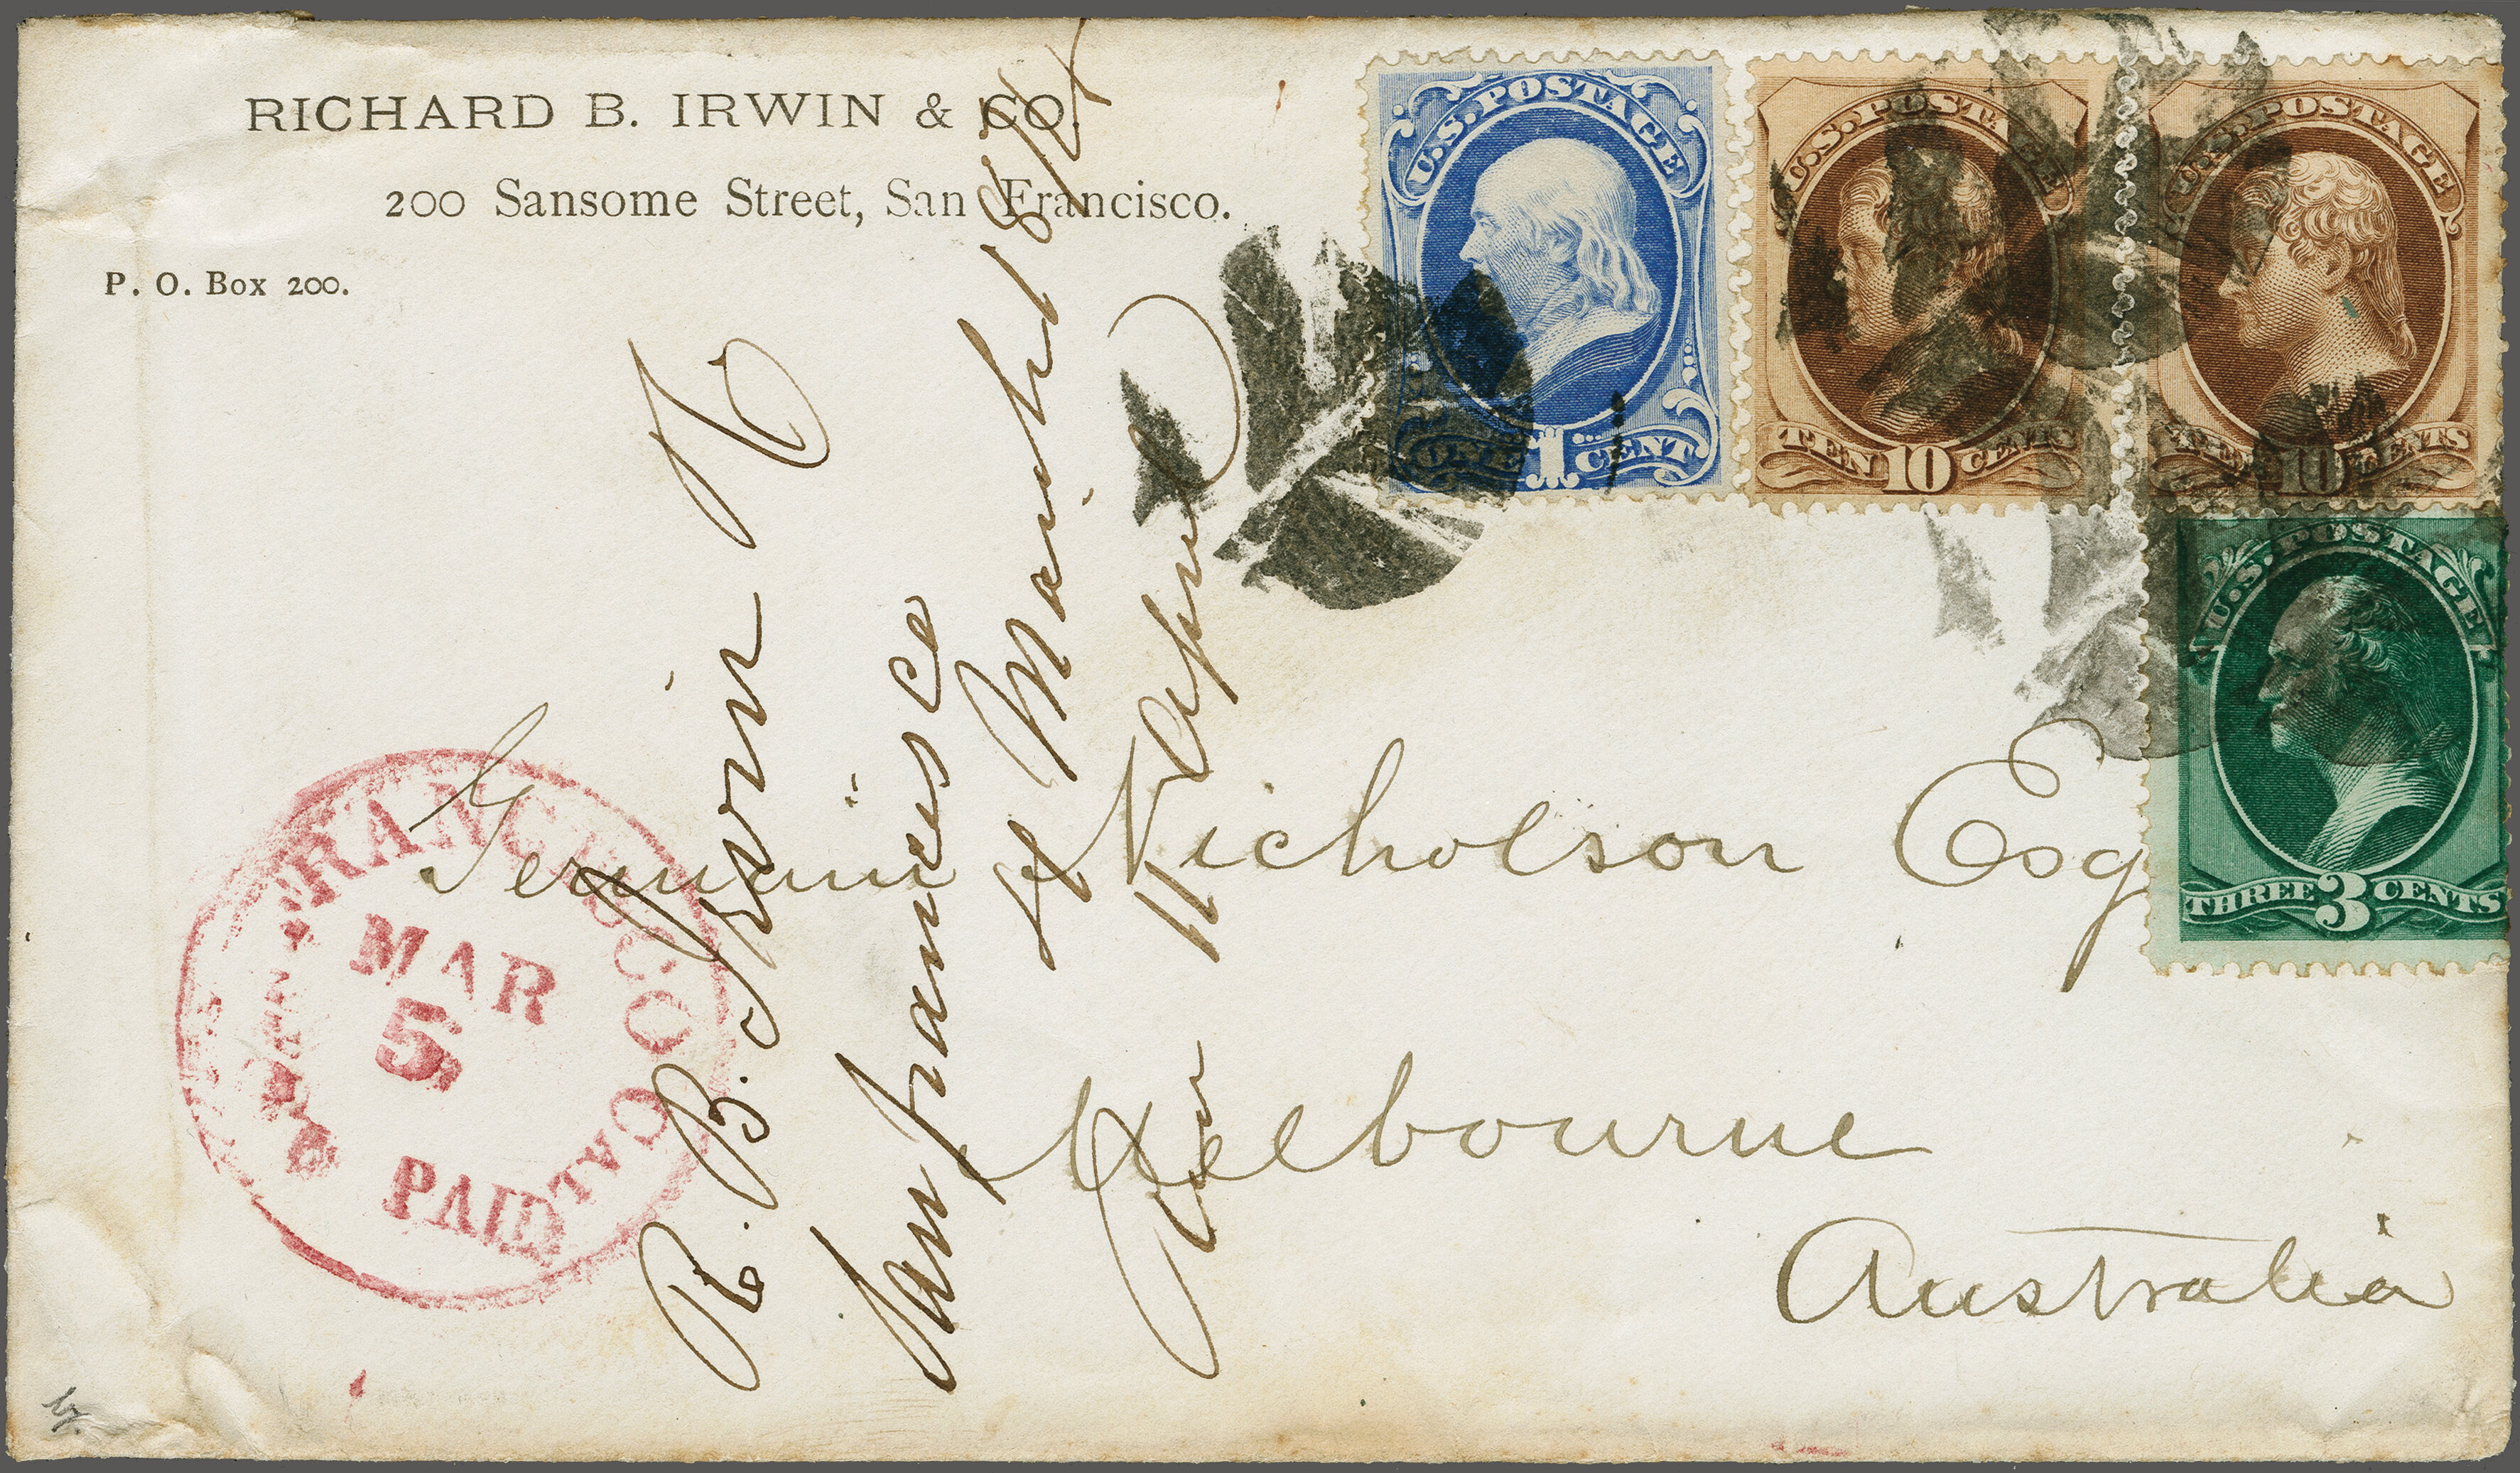 RICHARD B. IRWIN & CO.
200 Sansome Street, San Francisco.
P. O. Box 200.
U.S. POSTAGE
ONE 1 CENT
U.S. POSTAGE
TEN 10 CENTS
U.S. POSTAGE
TEN 10 CENTS
U.S. POSTAGE
THREE 3 CENTS
Germain Nicholson Esq
Melbourne
Australia
R. B. Irwin &
San Francisco
4 March
11 April
FRANCISCO
MAR
5
PAID